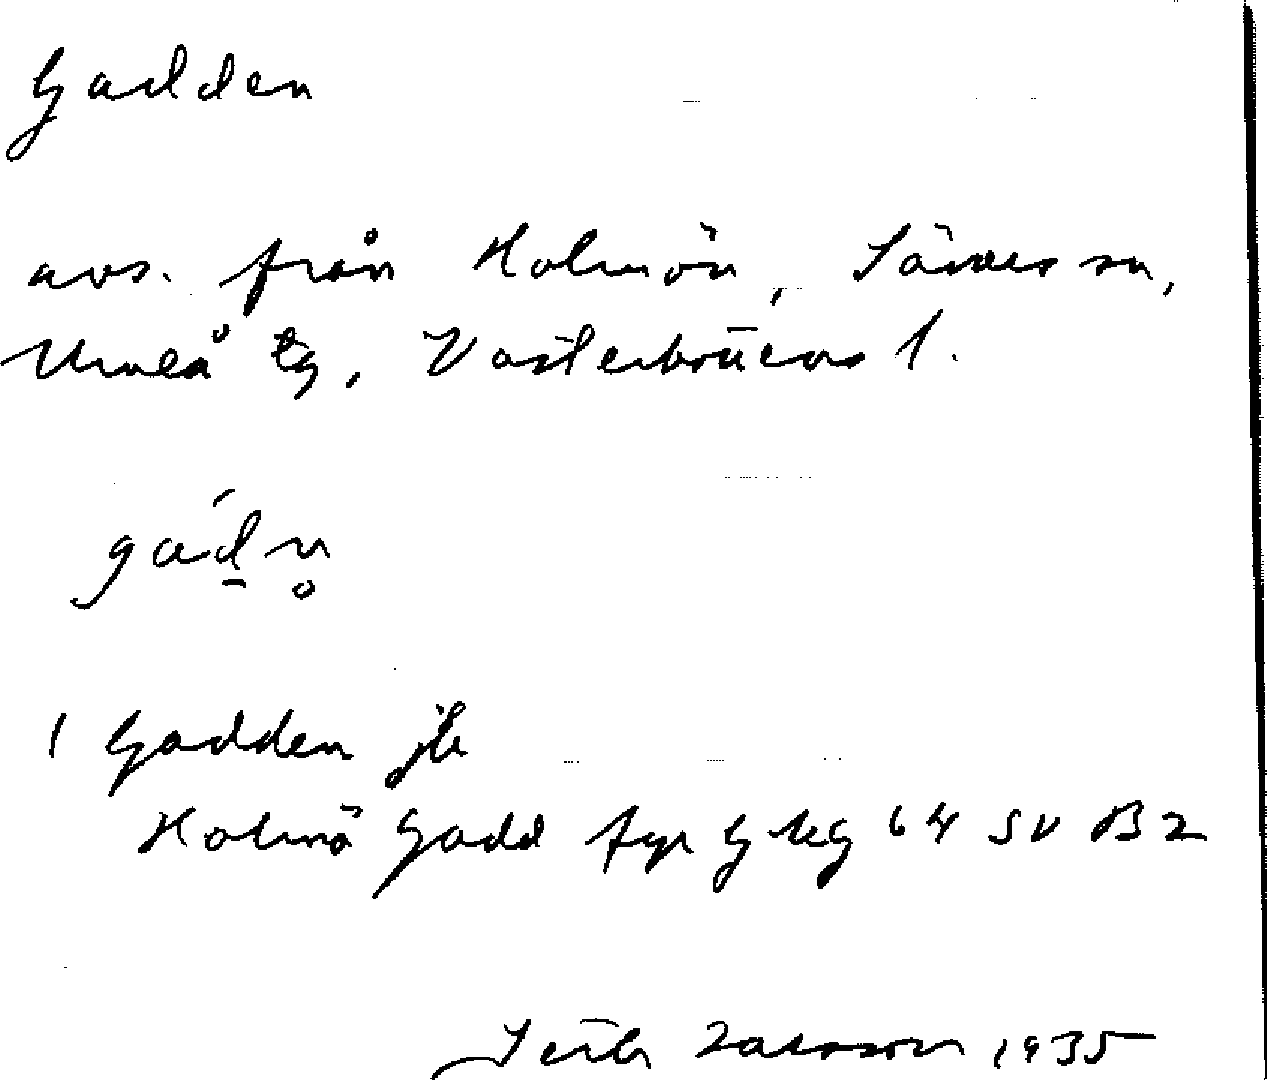 Gadden
avs. från Holmön, Sävars sn,
Umeå tg, Västerbottens l.
gád̠n̥
1 Gadden jle
Holmö Gadd fyr G kg 64 SV B2
Larsson 1935